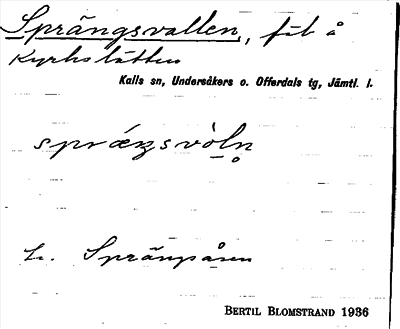 Sprängsvallen, fäb å
Kyrkslätten
Kalls sn, Undersåkers o. Offerdals tg, Jämtl. l.
Sprängsån
BERTIL BLOMSTRAND 1936